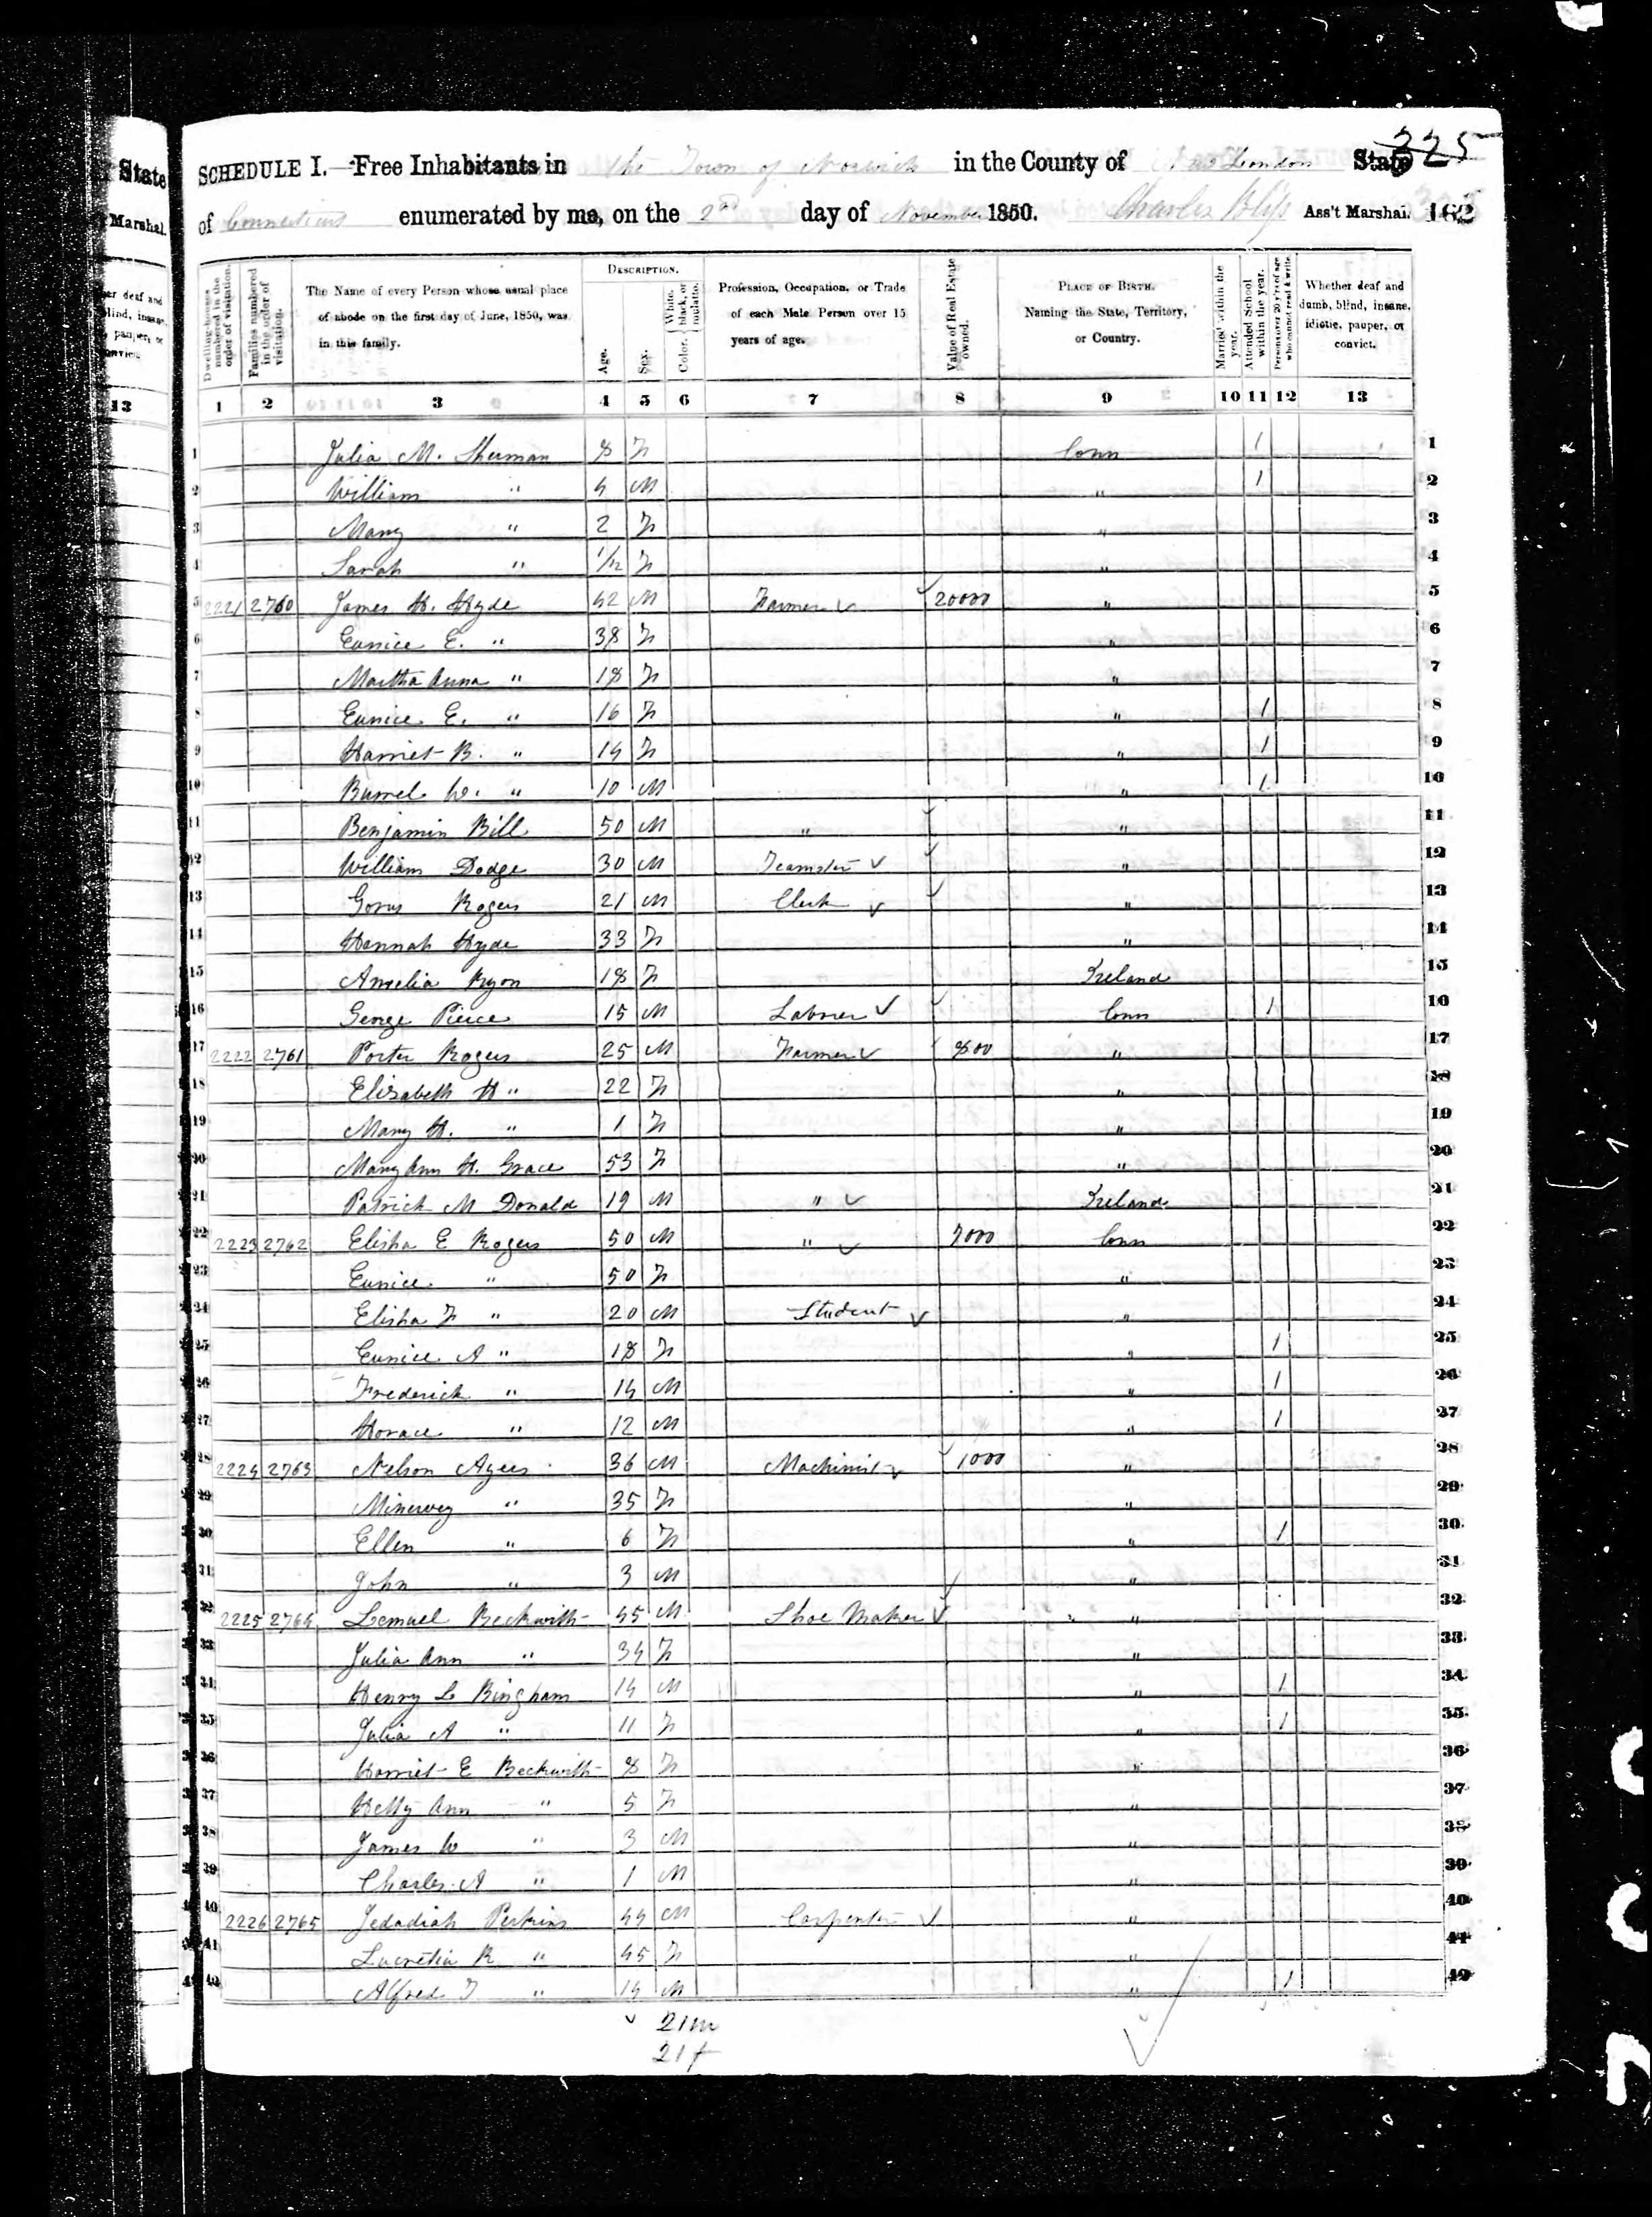 State
Marshal.
13
225
SCHEDULE I.—Free Inhabitants in the Town of Norwich in the County of New London State
of Connecticut enumerated by me, on the 2nd day of November 1850. Charles Bliss Ass't Marshal. 162
Dwelling-houses numbered in the order of visitation.
Families numbered in the order of visitation.
The Name of every Person whose usual place of abode on the first day of June, 1850, was in this family.
DESCRIPTION.
Age.
Sex.
Color, White, black, or mulatto.
Profession, Occupation, or Trade of each Male Person over 15 years of age.
Value of Real Estate owned.
PLACE OF BIRTH. Naming the State, Territory, or Country.
Married within the year.
Attended School within the year.
Persons over 20 y'rs of age who cannot read & write.
Whether deaf and dumb, blind, insane, idiotic, pauper, or convict.
1 2 3 4 5 6 7 8 9 10 11 12 13
1 Julia M. Sherman 8 F Conn 1 1
2 William " 4 M " 1 2
3 Mary " 2 F " 3
4 Sarah " 1/12 F " 4
5 2221 2760 James H. Hyde 42 M Farmer 20000 " 5
6 Eunice E. " 38 F " 6
7 Martha Anna " 18 F " 7
8 Eunice E. " 16 F " 1 8
9 Harriet B. " 14 F " 1 9
10 Burrel W. " 10 M " 1 10
11 Benjamin Bill 50 M " " 11
12 William Dodge 30 M Teamster " 12
13 Rogers 21 M Clerk " 13
14 Hannah Hyde 33 F " 14
15 Amelia Ryon 18 F Ireland 15
16 George Pierce 15 M Laborer Conn 1 16
17 2222 2761 Porter Rogers 25 M Farmer 800 " 17
18 Elizabeth H " 22 F " 18
19 Mary H. " 1 F " 19
20 Mary Ann H. Grace 53 F " 20
21 Patrick M Donald 19 M " Ireland 21
22 2223 2762 Elisha E Rogers 50 M " 7000 Conn 22
23 Eunice " 50 F " 23
24 Elisha F " 20 M Student " 24
25 Eunice A " 18 F " 1 25
26 Frederick " 14 M " 1 26
27 Horace " 12 M " 1 27
28 2224 2763 Nelson Ayers 36 M Machinist 1000 " 28
29 Minervey " 35 F " 29
30 Ellen " 6 F " 1 30
31 John " 3 M " 31
32 2225 2764 Lemuel Beckwith 45 M Shoe Maker " 32
33 Julia Ann " 34 F " 33
34 Henry L Bingham 14 M " 1 34
35 Julia A " 11 F " 1 35
36 Harriet E Beckwith 8 F " 36
37 Hetty Ann " 5 F " 37
38 James W " 3 M " 38
39 Charles A " 1 M " 39
40 2226 2765 Jedadiah Perkins 44 M Carpenter " 40
41 Lucretia R " 45 F " 41
42 Alfred F " 14 M " 1 42
21 m
21 f